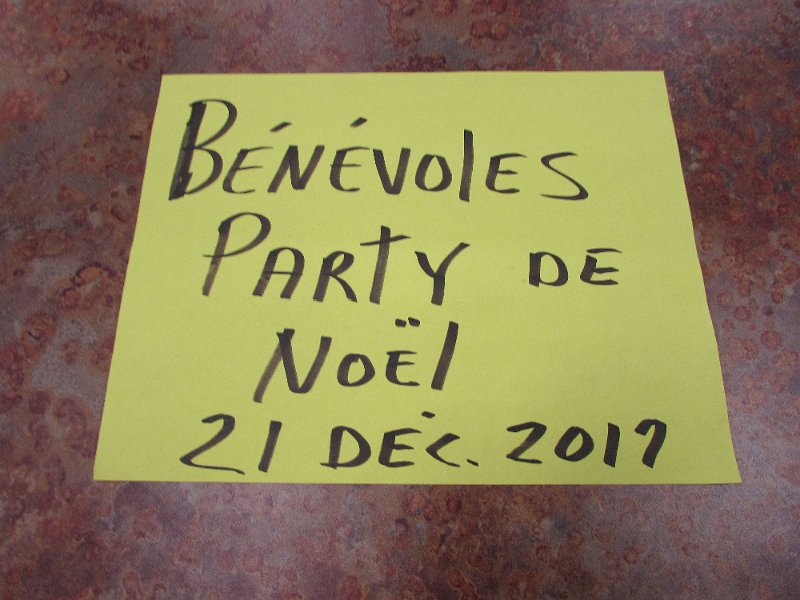 BÉNÉVOLES
PARTY DE
NOËl
21 DÉC. 2017